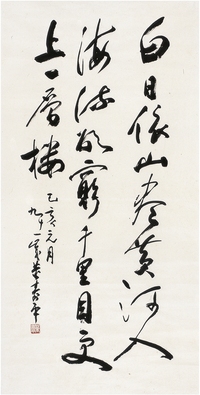 白日依山尽黄河入
海流欲穷千里目更
上一层楼
乙亥元月
九十一岁董寿平